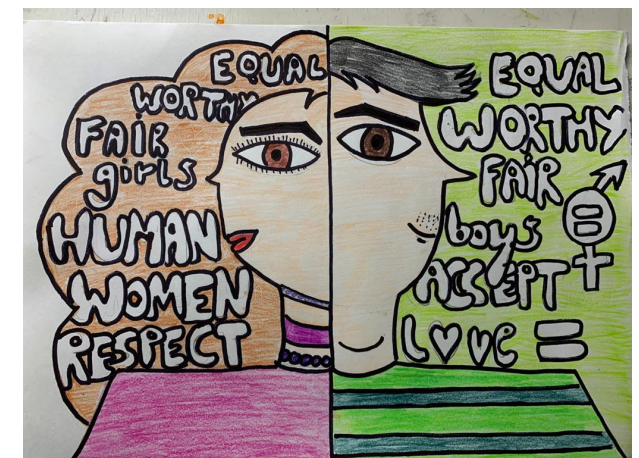 EQUAL
WORTHY
FAIR
girls
HUMAN
WOMEN
RESPECT
EQUAL
WORTHY
FAIR
boys
ACCEPT
L♥ve =